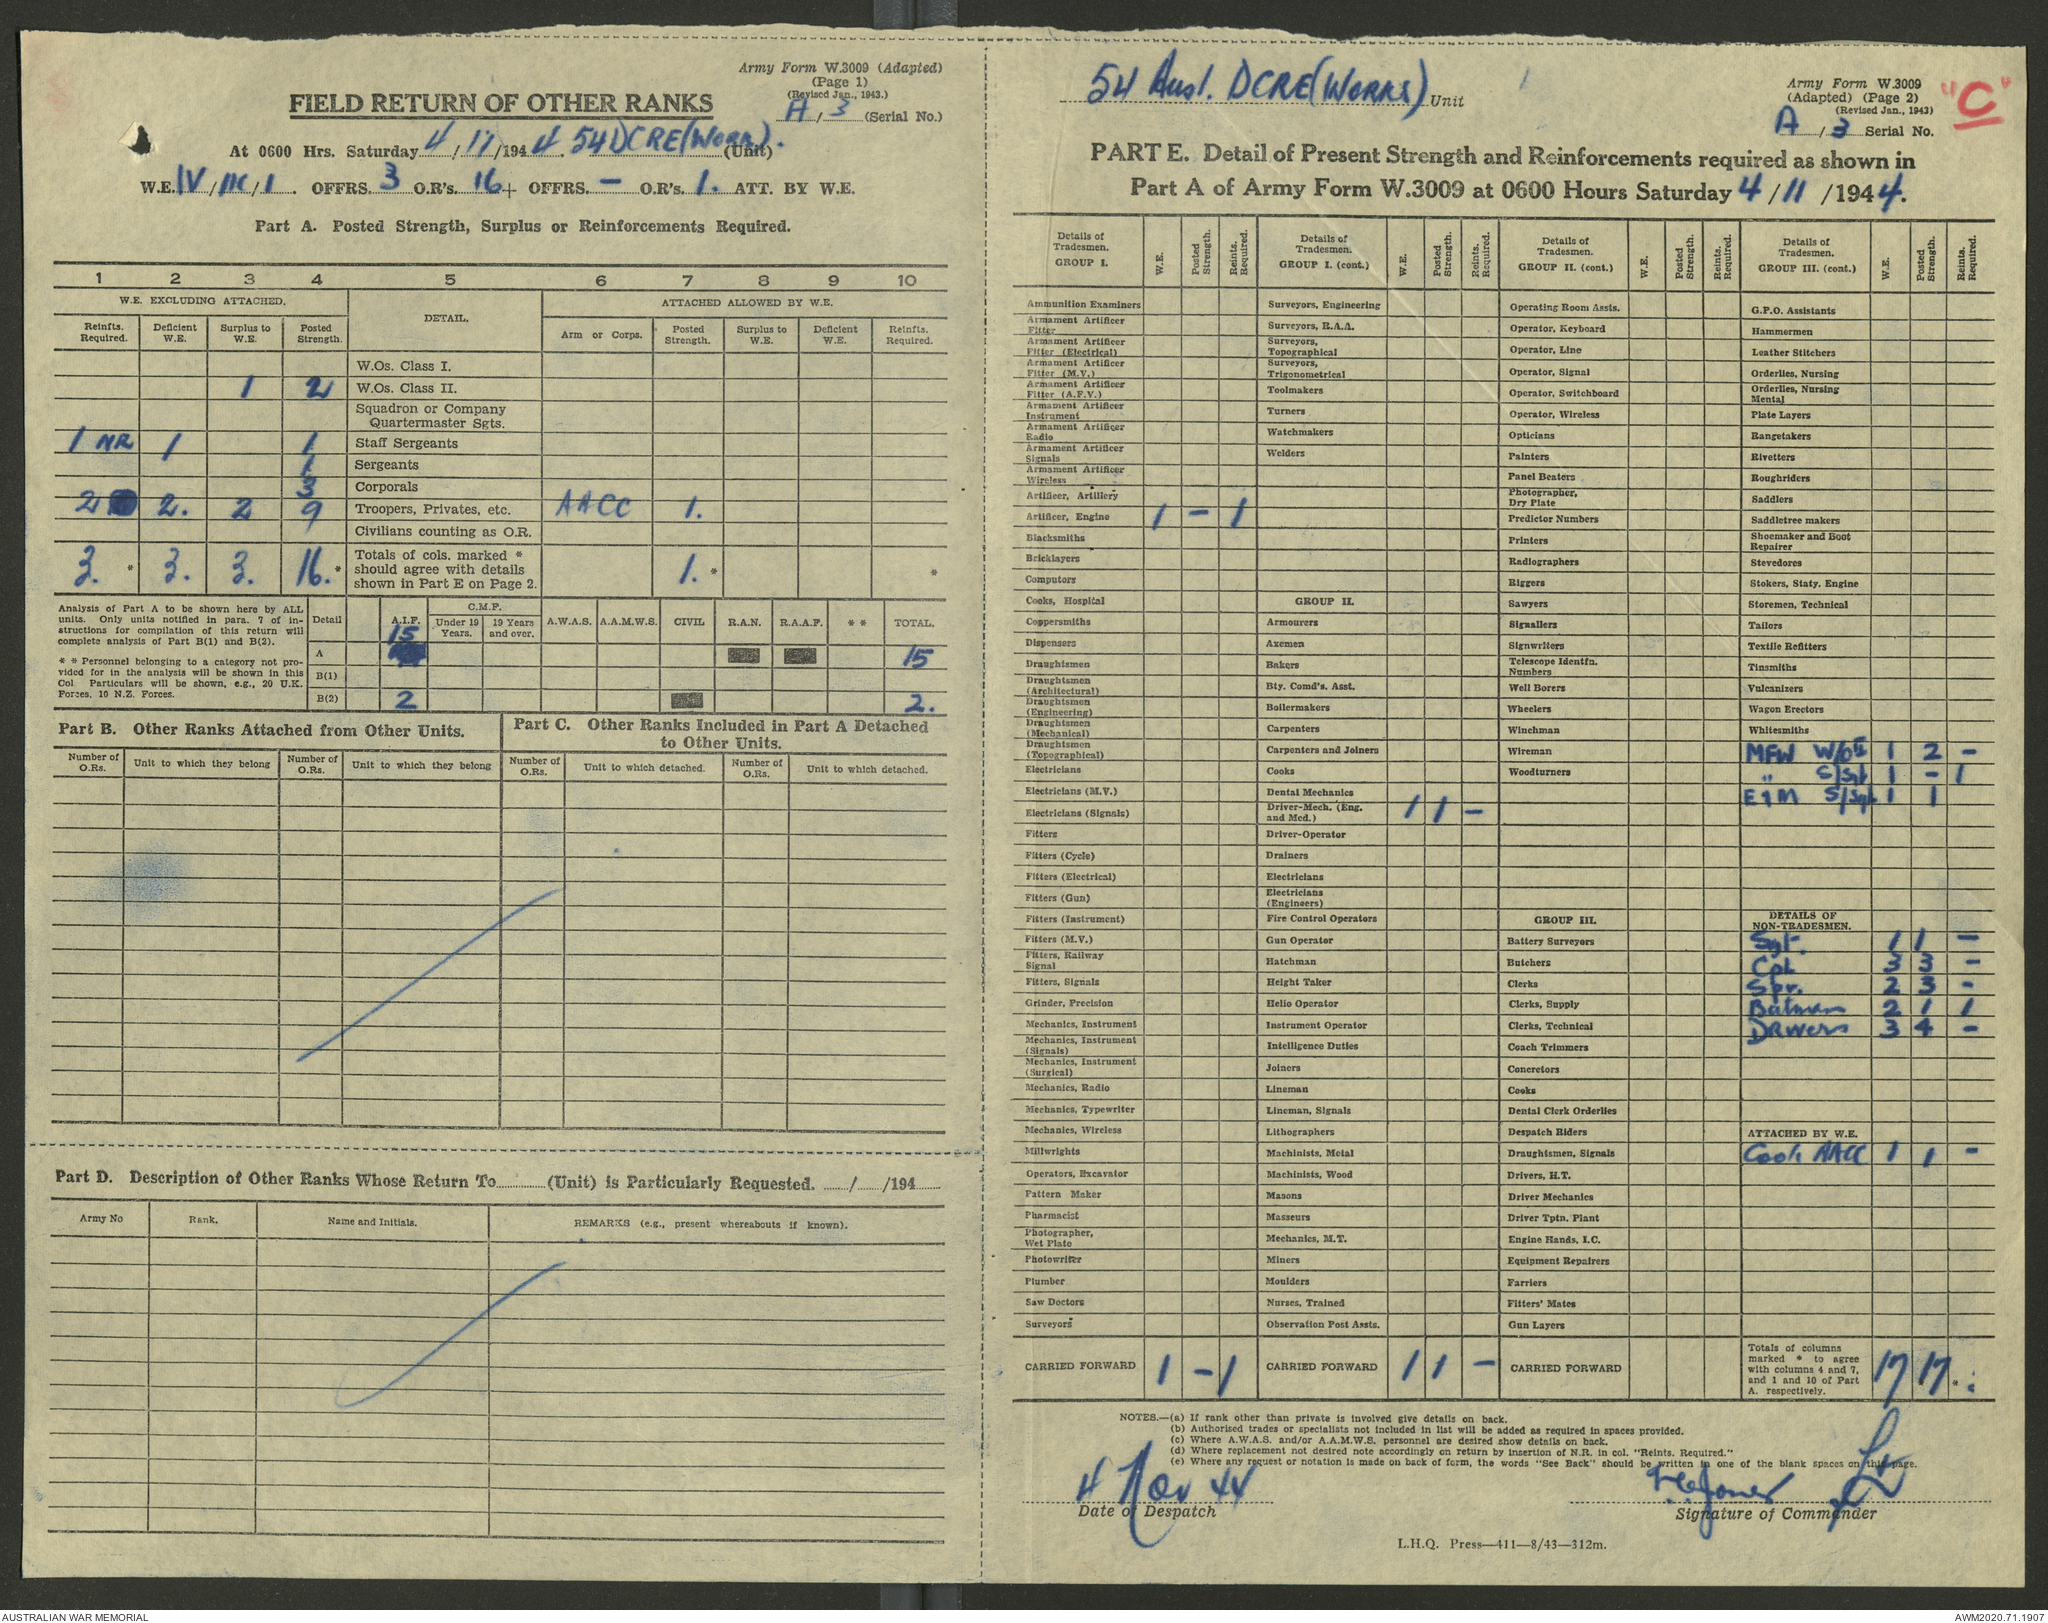 Army Form W.3009 (Adapted)
(Page 1)
(Revised Jan., 1943.)
FIELD RETURN OF OTHER RANKS
A / 3 (Serial No.)
At 0600 Hrs. Saturday 4 / 11 /194 4. 54 DCRE (Works). (Unit)
W.E. IV / / 1. OFFRS. 3 O.R's. 16 + OFFRS. — O.R's. 1. ATT. BY W.E.
Part A. Posted Strength, Surplus or Reinforcements Required.
1 2 3 4 5 6 7 8 9 10
W.E. EXCLUDING ATTACHED. DETAIL. ATTACHED ALLOWED BY W.E.
Reinfts. Required. Deficient W.E. Surplus to W.E. Posted Strength. Arm or Corps. Posted Strength. Surplus to W.E. Deficient W.E. Reinfts. Required.
W.Os. Class I.
1 2 W.Os. Class II.
Squadron or Company
Quartermaster Sgts.
1 NR 1 1 Staff Sergeants
1 Sergeants
3 Corporals
2 2. 2 9 Troopers, Privates, etc. AACC 1.
Civilians counting as O.R.
3. * 3. 3. 16. * Totals of cols. marked * should agree with details shown in Part E on Page 2. 1. * *
Analysis of Part A to be shown here by ALL
units. Only units notified in para. 7 of in-
structions for compilation of this return will
complete analysis of Part B(1) and B(2).
* * Personnel belonging to a category not pro-
vided for in the analysis will be shown in this
Col. Particulars will be shown, e.g., 20 U.K.
Forces, 10 N.Z. Forces.
Detail A.I.F. C.M.F. Under 19 Years. 19 Years and over. A.W.A.S. A.A.M.W.S. CIVIL R.A.N. R.A.A.F. * * TOTAL.
A 15 15
B(1)
B(2) 2 2.
Part B. Other Ranks Attached from Other Units.
Part C. Other Ranks Included in Part A Detached
to Other Units.
Number of O.Rs. Unit to which they belong Number of O.Rs. Unit to which they belong Number of O.Rs. Unit to which detached. Number of O.Rs. Unit to which detached.
Part D. Description of Other Ranks Whose Return To (Unit) is Particularly Requested. / /194
Army No Rank. Name and Initials. REMARKS (e.g., present whereabouts if known).
54 Aust. DCRE (Works) Unit
Army Form W.3009
(Adapted) (Page 2)
(Revised Jan., 1943)
"C"
A / 3 Serial No.
PART E. Detail of Present Strength and Reinforcements required as shown in
Part A of Army Form W.3009 at 0600 Hours Saturday 4 / 11 / 1944.
Details of Tradesmen. GROUP I. W.E. Posted Strength. Reints. Required.
Ammunition Examiners
Armament Artificer Fitter
Armament Artificer Fitter (Electrical)
Armament Artificer Fitter (M.V.)
Armament Artificer Fitter (A.F.V.)
Armament Artificer Instrument
Armament Artificer Radio
Armament Artificer Signals
Armament Artificer Wireless
Artificer, Artillery
Artificer, Engine 1 – 1
Blacksmiths
Bricklayers
Computors
Cooks, Hospital
Coppersmiths
Dispensers
Draughtsmen
Draughtsmen (Architectural)
Draughtsmen (Engineering)
Draughtsmen (Mechanical)
Draughtsmen (Topographical)
Electricians
Electricians (M.V.)
Electricians (Signals)
Fitters
Fitters (Cycle)
Fitters (Electrical)
Fitters (Gun)
Fitters (Instrument)
Fitters (M.V.)
Fitters, Railway Signal
Fitters, Signals
Grinder, Precision
Mechanics, Instrument
Mechanics, Instrument (Signals)
Mechanics, Instrument (Surgical)
Mechanics, Radio
Mechanics, Typewriter
Mechanics, Wireless
Millwrights
Operators, Excavator
Pattern Maker
Pharmacist
Photographer, Wet Plate
Photowriter
Plumber
Saw Doctors
Surveyors
CARRIED FORWARD 1 – 1
Details of Tradesmen. GROUP I. (cont.) W.E. Posted Strength. Reints. Required.
Surveyors, Engineering
Surveyors, R.A.A.
Surveyors, Topographical
Surveyors, Trigonometrical
Toolmakers
Turners
Watchmakers
Welders
GROUP II.
Armourers
Axemen
Bakers
Bty. Comd's. Asst.
Boilermakers
Carpenters
Carpenters and Joiners
Cooks
Dental Mechanics
Driver-Mech. (Eng. and Med.) 1 1 –
Driver-Operator
Drainers
Electricians
Electricians (Engineers)
Fire Control Operators
Gun Operator
Hatchman
Height Taker
Helio Operator
Instrument Operator
Intelligence Duties
Joiners
Lineman
Lineman, Signals
Lithographers
Machinists, Metal
Machinists, Wood
Masons
Masseurs
Mechanics, M.T.
Miners
Moulders
Nurses, Trained
Observation Post Assts.
CARRIED FORWARD 1 1 –
Details of Tradesmen. GROUP II. (cont.) W.E. Posted Strength. Reints. Required.
Operating Room Assts.
Operator, Keyboard
Operator, Line
Operator, Signal
Operator, Switchboard
Operator, Wireless
Opticians
Painters
Panel Beaters
Photographer, Dry Plate
Predictor Numbers
Printers
Radiographers
Riggers
Sawyers
Signallers
Signwriters
Telescope Identfn. Numbers
Well Borers
Wheelers
Winchman
Wireman
Woodturners
GROUP III.
Battery Surveyors
Butchers
Clerks
Clerks, Supply
Clerks, Technical
Coach Trimmers
Concretors
Cooks
Dental Clerk Orderlies
Despatch Riders
Draughtsmen, Signals
Drivers, H.T.
Driver Mechanics
Driver Tptn. Plant
Engine Hands, I.C.
Equipment Repairers
Farriers
Fitters' Mates
Gun Layers
CARRIED FORWARD
Details of Tradesmen. GROUP III. (cont.) W.E. Posted Strength. Reints. Required.
G.P.O. Assistants
Hammermen
Leather Stitchers
Orderlies, Nursing
Orderlies, Nursing Mental
Plate Layers
Rangetakers
Rivetters
Roughriders
Saddlers
Saddletree makers
Shoemaker and Boot Repairer
Stevedores
Stokers, Staty. Engine
Storemen, Technical
Tailors
Textile Refitters
Tinsmiths
Vulcanizers
Wagon Erectors
Whitesmiths
MFW W/O II 1 2 –
" S/Sgt 1 – 1
E & M S/Sgt 1 1
DETAILS OF NON-TRADESMEN.
Sgt. 1 1 –
Cpl 3 3 –
Spr. 2 3 –
Batmen 2 1 1
Drivers 3 4 –
ATTACHED BY W.E.
Cook AACC 1 1 –
Totals of columns marked * to agree with columns 4 and 7, and 1 and 10 of Part A. respectively. 17 17 *
NOTES.—(a) If rank other than private is involved give details on back.
(b) Authorised trades or specialists not included in list will be added as required in spaces provided.
(c) Where A.W.A.S. and/or A.A.M.W.S. personnel are desired show details on back.
(d) Where replacement not desired note accordingly on return by insertion of N.R. in col. "Reints. Required."
(e) Where any request or notation is made on back of form, the words "See Back" should be written in one of the blank spaces on this page.
4 Nov 44
Date of Despatch
Signature of Commander
L.H.Q. Press—411—8/43—312m.
AUSTRALIAN WAR MEMORIAL
AWM2020.71.1907